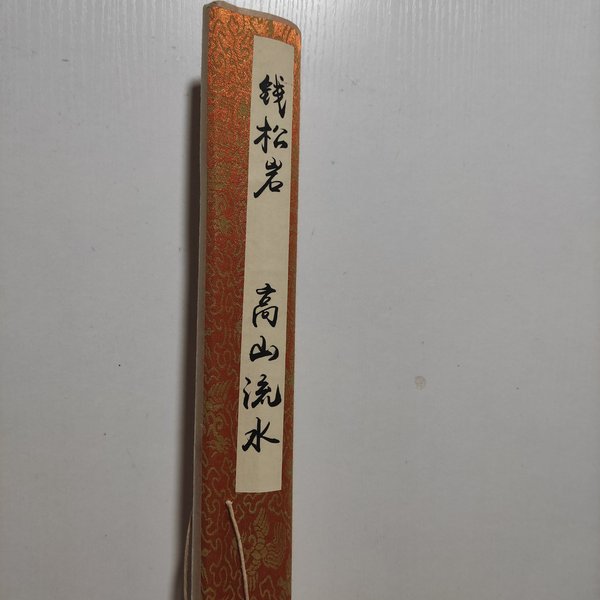 钱松岩
高山流水